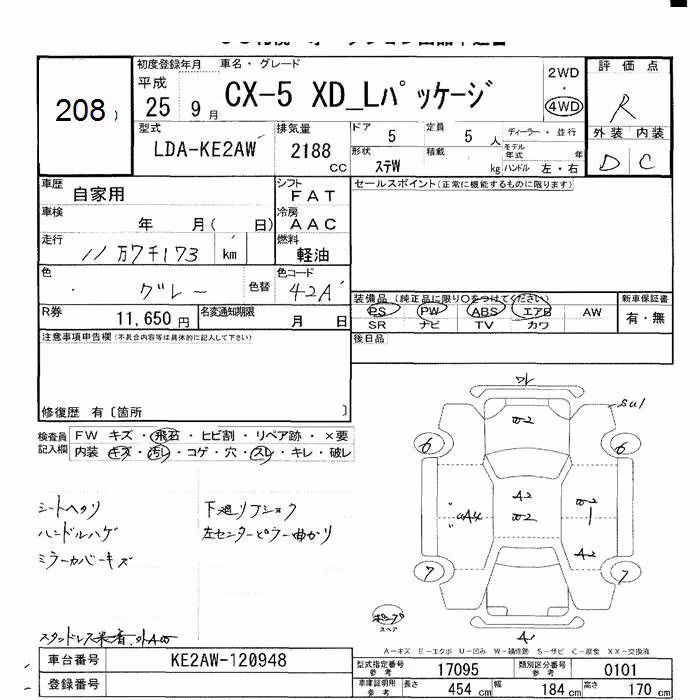 208
初度登録年月 車名・グレード 評価点
平成 25年 9月 CX-5 XD_Lパッケージ 2WD 4WD R
外装 内装
D C
型式 排気量 ドア 定員 ディーラー・並行
LDA-KE2AW 2188 CC 5 5人 モデル年式 年
形状 ステW 積載 kg ハンドル 左・右
車歴 自家用 シフト FAT セールスポイント(正常に機能するものに限ります)
車検 年 月( 日) 冷房 AAC
走行 11万7千173 km 燃料 軽油
色 グレー 色替 色コード 42A
装備品(純正品に限り○をつけてください) 新車保証書
PS PW ABS エアB AW 有・無
SR ナビ TV カワ
R券 11,650円 名変通知期限 月 日
後日品
注意事項申告欄(不具合内容等は具体的に記入して下さい)
修復歴 有〔箇所 〕
検査員記入欄 FW キズ・飛石・ヒビ割・リペア跡・×要
内装 キズ・汚レ・コゲ・穴・スレ・キレ・破レ
シートヘタリ 下廻リフショク
ハンドルハゲ 左センターピラー曲がり
ミラーカバーキズ
6 6
A2
A2
7 7
A1
スペア
A-キズ E-エクボ U-凹み W-補修跡 S-サビ C-腐食 XX-交換済
車台番号 KE2AW-120948 型式指定番号 参考 17095 類別区分番号 参考 0101
登録番号 車庫証明用 参考 長さ 454cm 幅 184cm 高さ 170cm